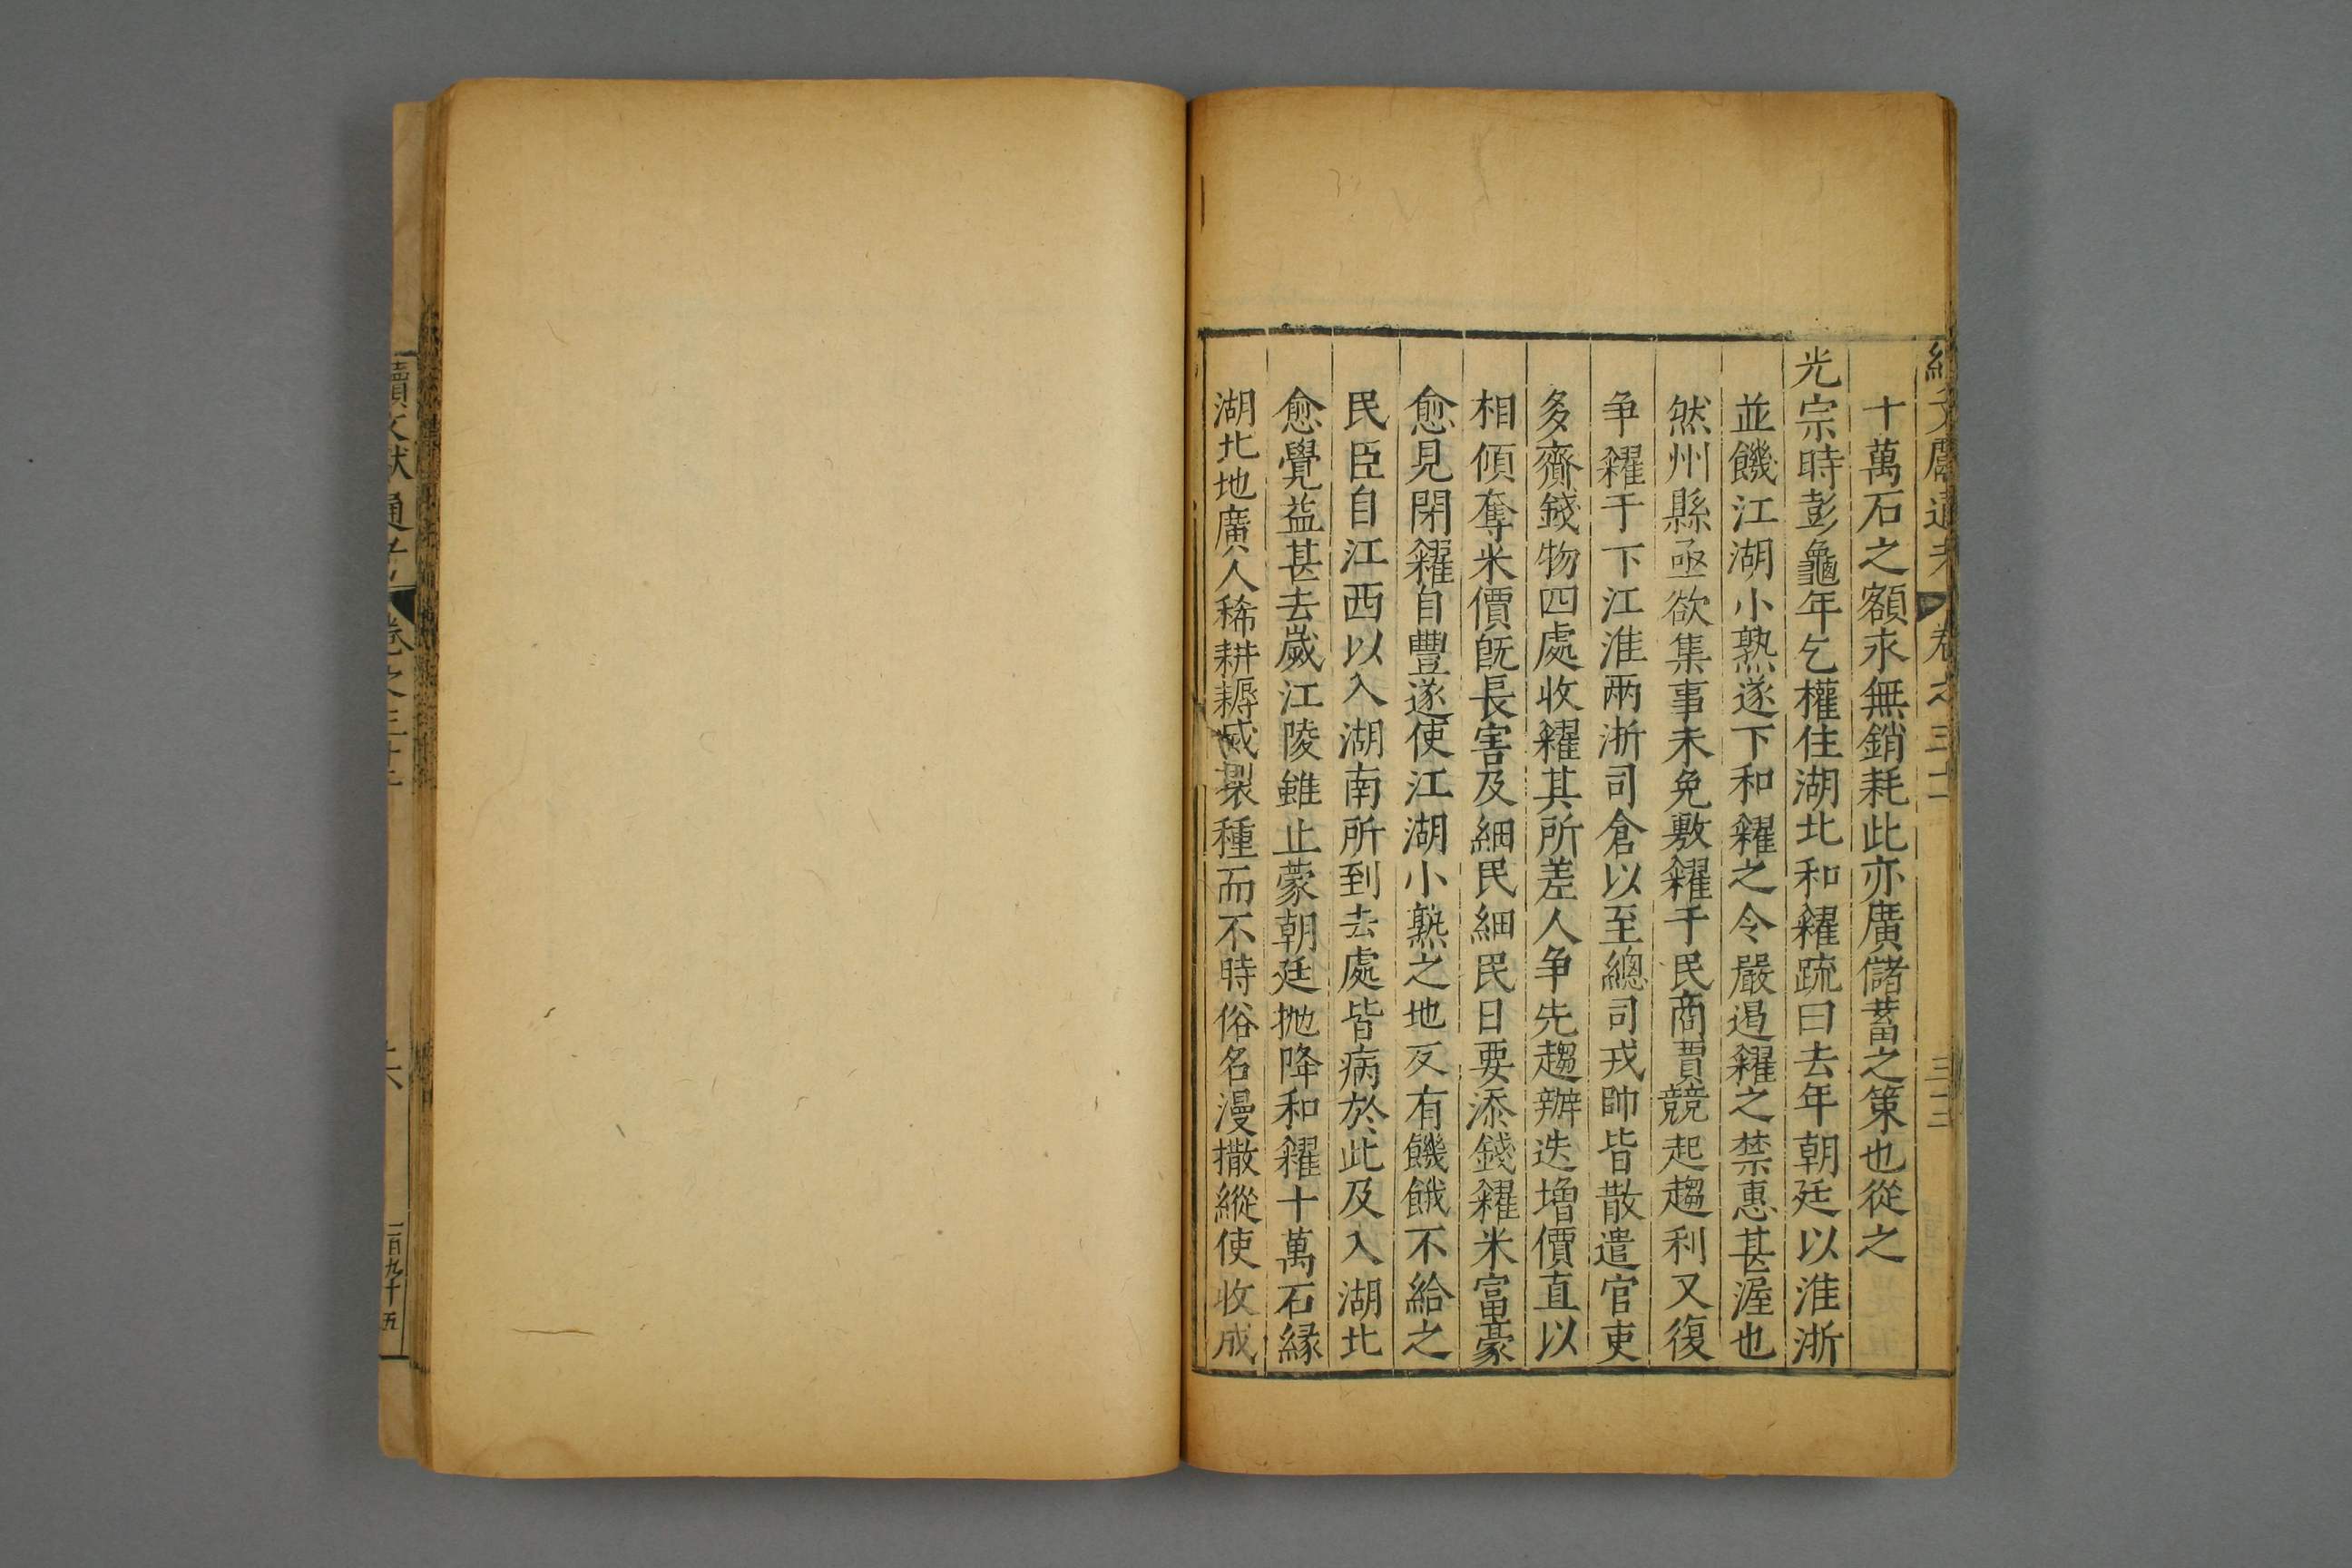 十萬石之額永無銷耗此亦廣儲蓄之策也從之
光宗時彭龜年乞權住湖北和糴疏曰去年朝廷以淮浙
並饑江湖小熟遂下和糴之令嚴遏糴之禁惠甚渥也
然州縣亟欲集事未免敷糴千民商賈競起趨利又復
争糴于下江淮兩浙司倉以至總司戎帥皆散遣官吏
多齎錢物四處收糴其所差人争先趨辦迭增價直以
相傾奪米價既長害及細民細民日要添錢糴米富豪
愈見閉糴自豐遂使江湖小熟之地反有饑餓不給之
民臣自江西以入湖南所到去處皆病於此及入湖北
愈覺益甚去歲江陵雖止蒙朝廷抛降和糴十萬石緣
湖北地廣人稀耕耨滅裂種而不時俗名漫撒縱使收成
續文獻通考 卷之三十
二百九十五